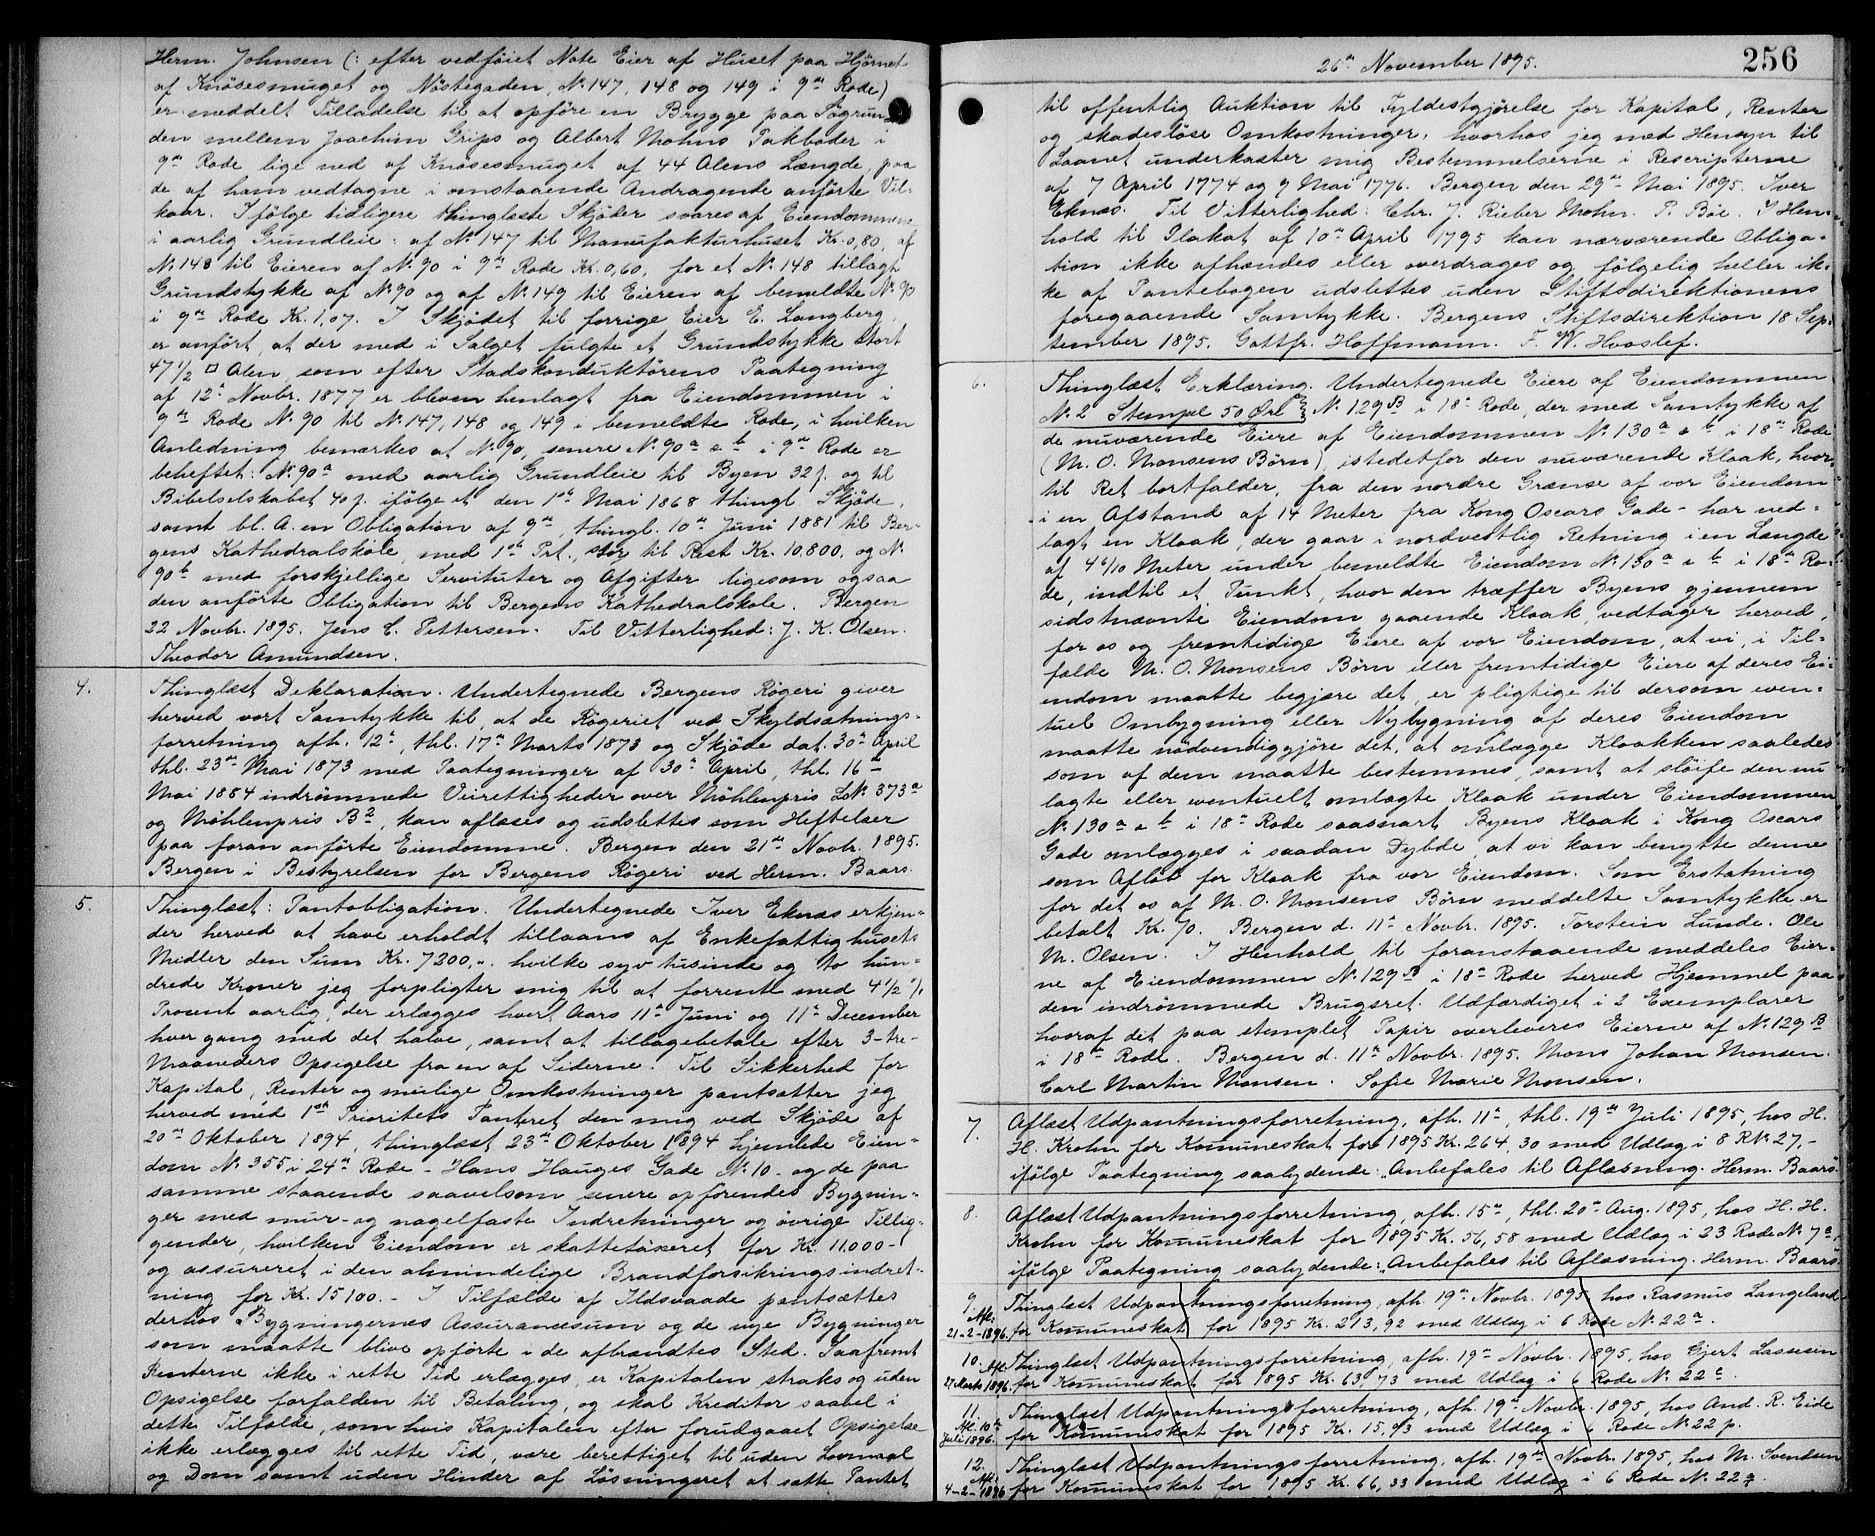 Herm. Johnsen (: efter vedføiet Note Eier af Huset paa Hjørnet
af Knøsesmuget og Nöstegaden, No 147, 148 og 149 i 9de Rode)
er meddelt Tilladelse til at opföre en Brygge paa Søgrun-
den mellem Joachim Grips og Albert Mohns Pakboder i
9de Rode lige ned af Knøsesmuget af 44 Alens Længde paa
de af ham vedtagne i omstaaende Andragende anførte Vil-
kaar. Ifölge tidligere thinglæste Skjöder svares af Eiendommene
i aarlig Grundleie: af No 147 til Manufakturhuset Kr. 0,80, af
No 148 til Eieren af No 90 i 9de Rode Kr. 0,60, for et No 148 tillagt
Grundstykke af No 90 og af No 149 til Eieren af bemeldte No 90
i 9de Rode Kr. 1,07. I Skjödet til forrige Eier E. Langberg,
er anfört, at der med i Salget fulgte et Grundstykke stort
47 1/2 □ Alen, som efter Stadskonduktörens Paategning
af 12te Novbr. 1877 er bleven henlagt fra Eiendommen i
9de Rode No 90 til No 147, 148 og 149 i bemeldte Rode, i hvilken
Anledning bemærkes at No 90, senere No 90a & b i 9de Rode er
beheftet: No 90a med aarlig Grundleie til Byen 32 f. og til
Bibelselskabet 40 f. ifölge et den 1ste Mai 1868 thingl. Skjöde,
samt bl. A. en Obligation af 9de, thingl. 10de Juni 1881 til Ber-
gens Kathedralskole, med 1ste Prt., stor til Rest Kr. 10,800, og No
90b med forskjellige Servituter og Afgifter ligesom ogsaa
den anförte Obligation til Bergens Kathedralskole. Bergen
22 Novbr. 1895. Jens C. Pettersen. Til Vitterlighed: J. K. Olsen.
Theodor Amundsen.
4. Thinglæst Deklaration. Undertegnede Bergens Røgeri giver
herved vort Samtykke til, at de Røgeriet ved Skyldsætnings-
forretning afh. 12te, thl. 17de Marts 1873 og Skjöde dat. 30te April
thl. 23de Mai 1873 med Paategninger af 30te April, thl. 16de
Mai 1884 indrömmede Veirettigheder over Möhlenpris LNo 373a
og Möhlenpris B2, kan aflæses og udslettes som Heftelser
paa foran anförte Eiendomme. Bergen den 21de Novbr. 1895.
Bergen i Bestyrelsen for Bergens Røgeri ved Herm. Baars.
5. Thinglæst: Pantobligation. Undertegnede Iver Eknæs erkjen-
der herved at have erholdt tillaans af Enkefattighusets
Midler den Sum Kr. 7200,-. hvilke syv tusinde og to hun-
drede Kroner jeg forpligter mig til at forrente med 4 1/2 %
Procent aarlig, der erlægges hvert Aars 11te Juni og 11te December
hver gang med det halve, samt at tilbagebetale efter 3-tre-
Maaneders Opsigelse fra en af Siderne. Til Sikkerhed for
Kapital, Renter og mulige Omkostninger pantsætter jeg
herved med 1ste Prioritets Panteret den mig ved Skjöde af
20de Oktober 1894, thinglæst 23de Oktober 1894 hjemlede Eien-
dom No 355 i 24de Rode - Hans Hauges Gade No 10 - og de paa
samme staaende saavelsom senere opförendes Bygnin-
ger med mur- og nagelfaste Indretninger og övrige Tillig-
gender, hvilken Eiendom er skattetaxeret for Kr. 11.000-
og assureret i den almindelige Brandforsikringsindret-
ning for Kr. 15100. - I Tilfælde af Ildsvaade pantsættes
derhos Bygningernes Assurancesum og de nye Bygninger
som maatte blive opförte i de afbrændtes Sted. Saafremt
Renterne ikke i rette Tid erlægges, er Kapitalen straks og uden
Opsigelse forfalden til Betaling, og skal Kreditor saavel i
dette Tilfælde, som hvis Kapitalen efter forudgaaet Opsigelse
ikke erlægges til rette Tid, være berettiget til uden Lovmaal
og Dom samt uden Hinder af Løsningsret at sætte Pantet
26de November 1895. 256
til offentlig Auktion til Fyldestgjörelse for Kapital, Renter
og skadeslöse Omkostninger, hvorhos jeg med Hensyn til
Laanet underkaster mig Bestemmelserne i Rescripterne
af 7 April 1774 og 9 Mai 1776. Bergen den 29de Mai 1895. Iver
Eknæs. Til Vitterlighed: Chr. J. Rieber Mohn. P. Böe. I Hen-
hold til Plakat af 10de April 1795 kan nærværende Obliga-
tion ikke afhændes eller overdrages og fölgelig heller ik-
ke af Pantebogen udslettes uden Stiftsdirektionens
foregaaende Samtykke. Bergens Stiftsdirektion 18 Sep-
tember 1895. Gottfr. Hoffmann. F. W. Hvoslef.
6. Thinglæst Erklæring. Undertegnede Eiere af Eiendommen
No 2 Stempel 50 Øre No 129B i 18de Rode, der med Samtykke af
de nuværende Eiere af Eiendommen No 130a & b i 18de Rode
(M. O. Monsens Börn), istedetfor den nuværende Kloak, hvor-
til Ret bortfalder, fra den nordre Grænse af vor Eiendom
- i en Afstand af 14 Meter fra Kong Oscars Gade - har ned-
lagt en Kloak, der gaar i nordvestlig Retning i en Længde
af 4 6/10 Meter under bemeldte Eiendom No 130a & b i 18de Ro-
de, indtil et Punkt, hvor den træffer Byens gjennem
sidstnævnte Eiendom gaaende Kloak, vedtager herved,
for os og fremtidige Eiere af vor Eiendom, at vi, i Til-
fælde M. O. Monsens Börn eller fremtidige Eiere af deres Ei-
endom maatte begjære det, er pligtige til dersom even-
tuel Ombygning eller Nybygning af deres Eiendom
maatte nödvendiggjöre det, at omlægge Kloakken saaledes
som af dem maatte bestemmes, samt at slöife den nu
lagte eller eventuelt omlagte Kloak under Eiendommen
No 130a & b i 18de Rode saasnart Byens Kloak i Kong Oscars
Gade omlægges i saadan Dybde, at vi kan benytte denne
som Aflöb for Kloak fra vor Eiendom. Som Erstatning
for det os af M. O. Monsens Börn meddelte Samtykke er
betalt Kr. 70. Bergen d. 11te Novbr. 1895. Torstein Lunde. Ole
M. Olsen. I Henhold til foranstaaende meddeles Eier-
ne af Eiendommen No 129B i 18de Rode herved Hjemmel paa
den indrömmede Brugsret. Udfærdiget i 2 Exemplarer
hvoraf det paa stemplet Papir overleveres Eierne af No 129B
i 18de Rode. Bergen d. 11te Novbr. 1895. Mons Johan Monsen.
Carl Martin Monsen. Sofie Marie Monsen.
7. Aflæst Udpantningsforretning, afh. 11te, thl. 19de Juli 1895, hos H.
H. Krohn for Komuneskat for 1895 Kr. 264,30 med Udlæg i 8 RNo 27,-
ifölge Paategning saalydende: "Anbefales til Aflæsning. Herm. Baars.
8. Aflæst Udpantningsforretning, afh. 15de, thl. 20de Aug. 1895, hos H. H.
Krohn for Komuneskat for 1895 Kr. 56,58 med Udlæg i 23 Rode No 7a,
ifölge Paategning saalydende: "Anbefales til Aflæsning. Herm. Baars.
9. Thinglæst Udpantningsforretning, afh. 19de Novbr. 1895 hos Rasmus Langeland
Afl. 21-2-1896. for Komuneskat for 1895 Kr. 213,92 med Udlæg i 6 Rode No 22a.
10. Afl. Thinglæst Udpantningsforretning, afh. 19de Novbr. 1895, hos Gjert Lassesen
Marts 1896. for Komuneskat for 1895 Kr. 63,73 med Udlæg i 6 Rode No 22c.
11. Thinglæst Udpantningsforretning, afh. 19de Novbr. 1895, hos And. R. Eide
Afl. 10de Juli 1896. for Komuneskat for 1895 Kr. 15,93 med Udlæg i 6 Rode No 22 p.
12. Thinglæst Udpantningsforretning, afh. 19de Novbr. 1895, hos M. Svendsen
Afl. 4-2-1896 for Komuneskat for 1895 Kr. 66,33 med Udlæg i 6 Rode No 22 q.